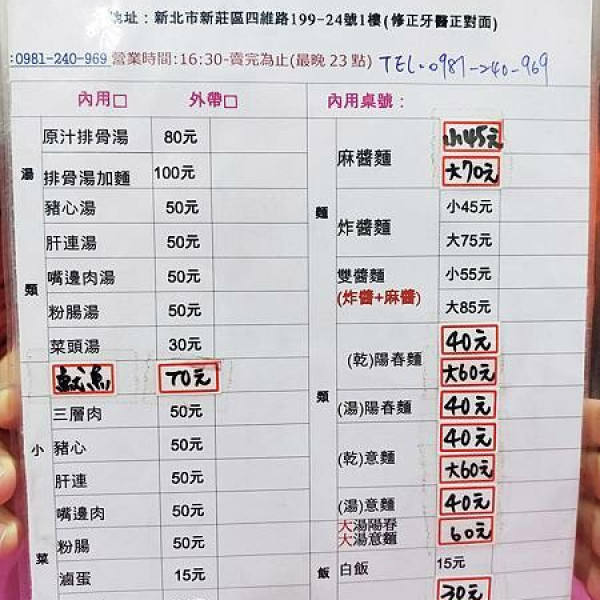 地址：新北市新莊區四維路199-24號1樓(修正牙醫正對面)
:0981-240-969 營業時間:16:30-賣完為止(最晚23點) TEL:0981-240-969
內用□ 外帶□ 內用桌號：
湯類
原汁排骨湯 80元
排骨湯加麵 100元
豬心湯 50元
肝連湯 50元
嘴邊肉湯 50元
粉腸湯 50元
菜頭湯 30元
魷魚 70元
小菜
三層肉 50元
豬心 50元
肝連 50元
嘴邊肉 50元
粉腸 50元
滷蛋 15元
麵類
麻醬麵 小45元
大70元
炸醬麵 小45元
大75元
雙醬麵 小55元
(炸醬+麻醬) 大85元
(乾)陽春麵 40元
大60元
(湯)陽春麵 40元
(乾)意麵 40元
大60元
(湯)意麵 40元
大湯陽春
大湯意麵 60元
飯
白飯 15元
30元